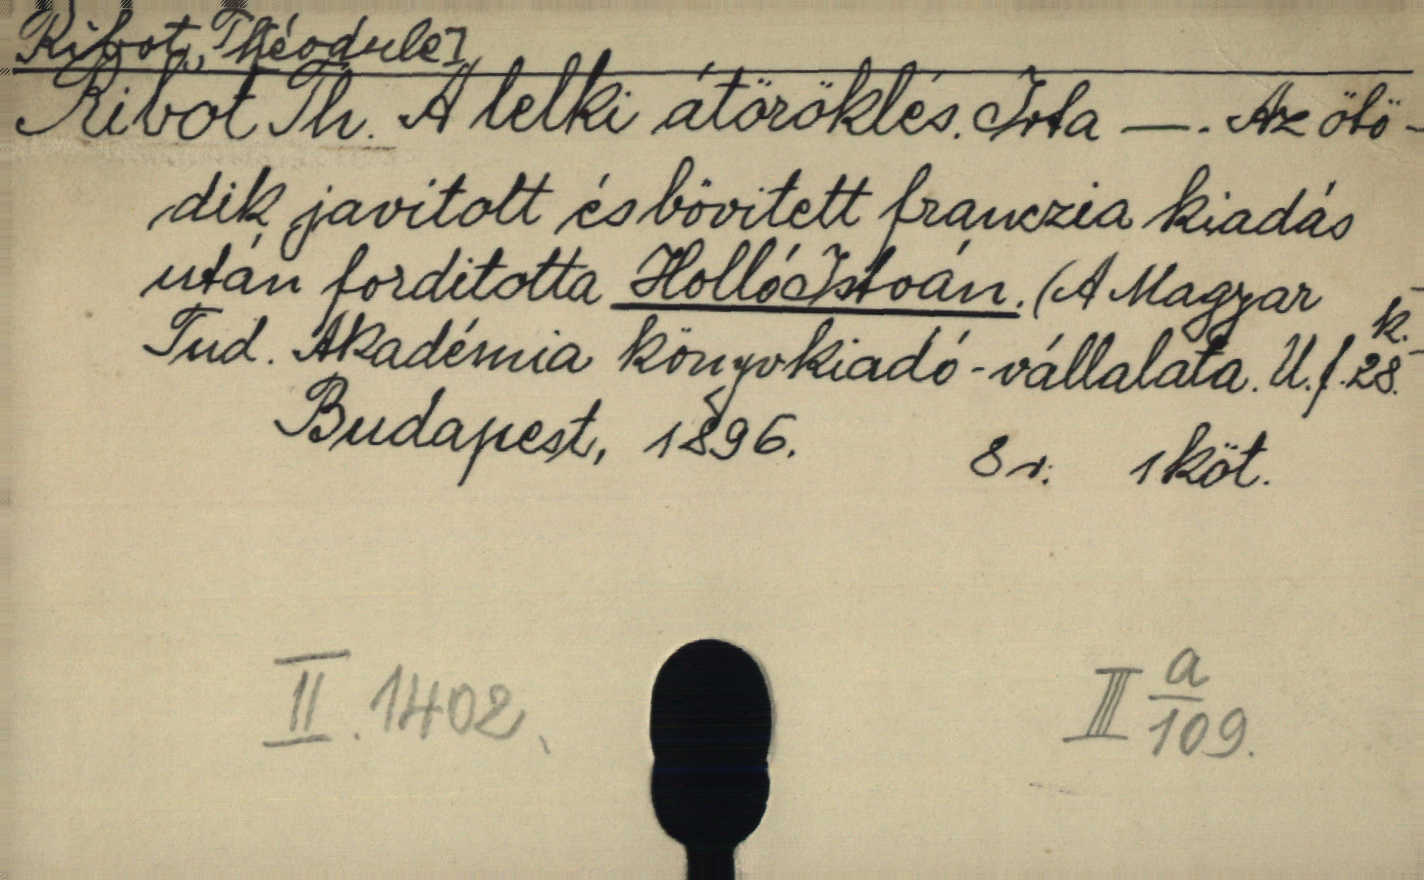 Ribot, Théodule]
Ribot Th. A lelki átöröklés. Irta —. Az ötö-
dik javitott és bövitett franczia kiadás
után forditotta Holló István. (A Magyar
Tud. Akadémia könyvkiadó-vállalata. U. f. 28. k.
Budapest, 1896. 8 r. 1 köt.
II. 1402.
III a/109.